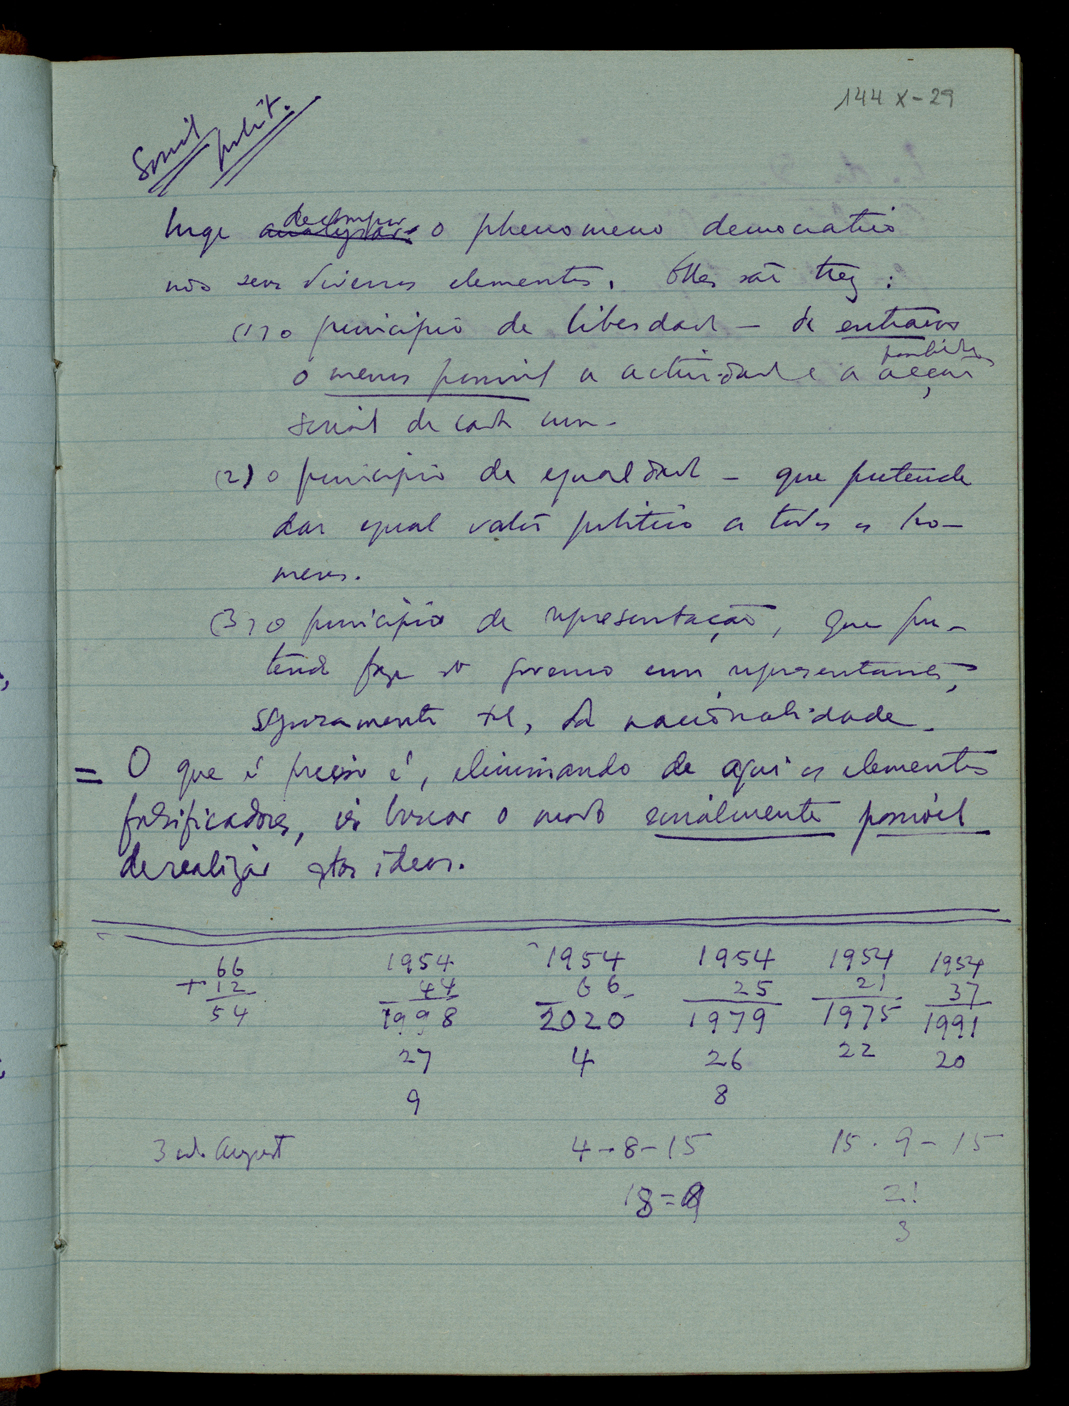 144 X-29
Social
polit.
Urge analysar decompor o phenomeno democratico
nos seus diversos elementos. Elles são trez:
(1) o principio de liberdade — de entravar
o menos possivel a actividade e a acção
social de cada um.
(2) o principio de egualdade — que pretende
dar egual valor politico a todos os ho-
mens.
(3) o principio de representação, que pre-
tende fazer do governo um representante,
seguramente tal, da nacionalidade.
= O que é preciso é, eliminando de aqui os elementos
falsificadores, ir buscar o modo socialmente possivel
de realizar estas ideas.
66 1954 1954 1954 1954 1954
+12 44 66 25 21 37
54 1998 2020 1979 1975 1991
27 4 26 22 20
9 8
3 August 4-8-15 15-9-15
18=9 21
3